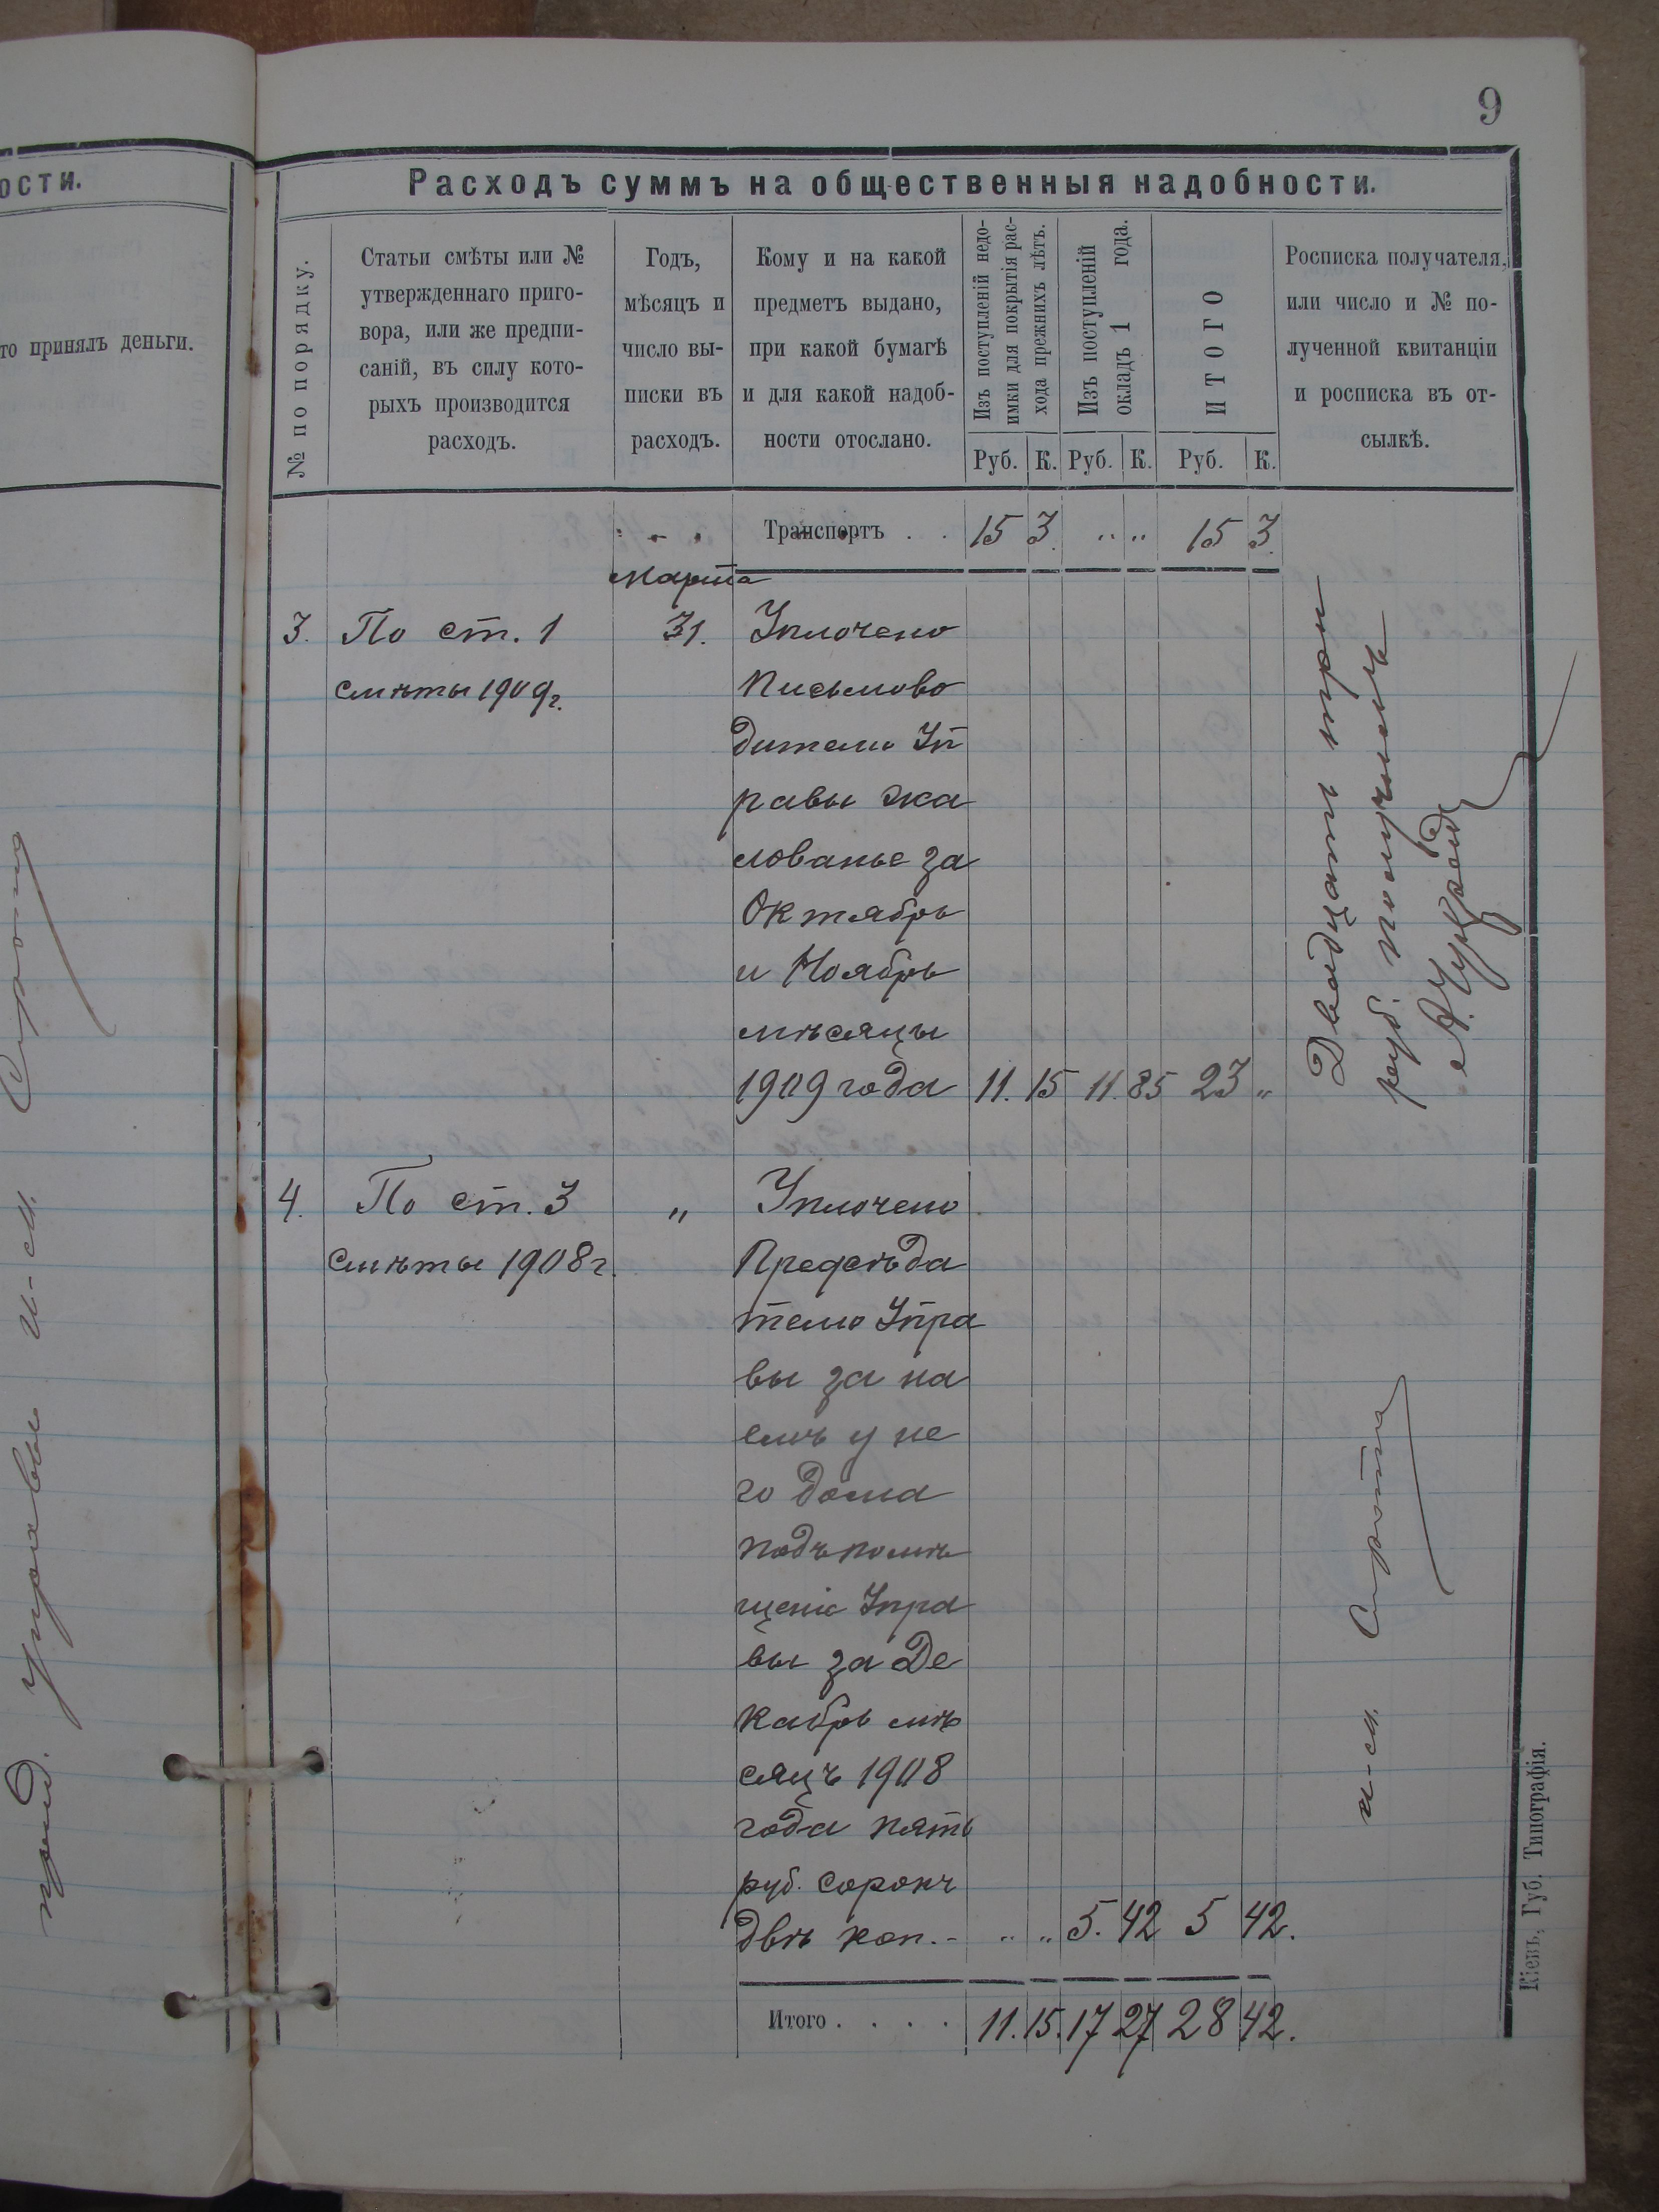 9
ости.
то принялъ деньги.
Расходъ суммъ на общественныя надобности.
№ по порядку.
Статьи смѣты или №
утвержденнаго приго-
вора, или же предпи-
саній, въ силу кото-
рыхъ производится
расходъ.
Годъ,
мѣсяцъ и
число вы-
писки въ
расходъ.
Кому и на какой
предметъ выдано,
при какой бумагѣ
и для какой надоб-
ности отослано.
Изъ поступленій недо-
имки для покрытія рас-
хода прежнихъ лѣтъ.
Изъ поступленій
окладъ 1 года.
ИТОГО
Росписка получателя,
или число и № по-
лученной квитанціи
и росписка въ от-
сылкѣ.
Руб. К. Руб. К. Руб. К.
Транспортъ . . 15 3. „ „ 15 3.
Марта
3. По ст. 1 31. Уплочено
смѣты 1909г. Письмово
дителю Уп
равы жа
лованье за
Октябрь
и Ноябрь
мѣсяцы
1909 года 11. 15 11. 85 23 „
Двадцать три
руб. получилъ
4. По ст. 3 „ Уплочено
смѣты 1908г. Предсѣда
телю Упра
вы за на
емъ у не
го дома
подъ помѣ
щеніе Упра
вы за Де
кабрь мѣ
сяцъ 1908
года пять
руб. сорокъ
двѣ коп. - „ „ 5. 42 5 42.
и-м. Сирота
Итого . . . . 11. 15. 17 27 28 42.
Кіевъ, Губ. Типографія.
пред. управы и-м. Сирота